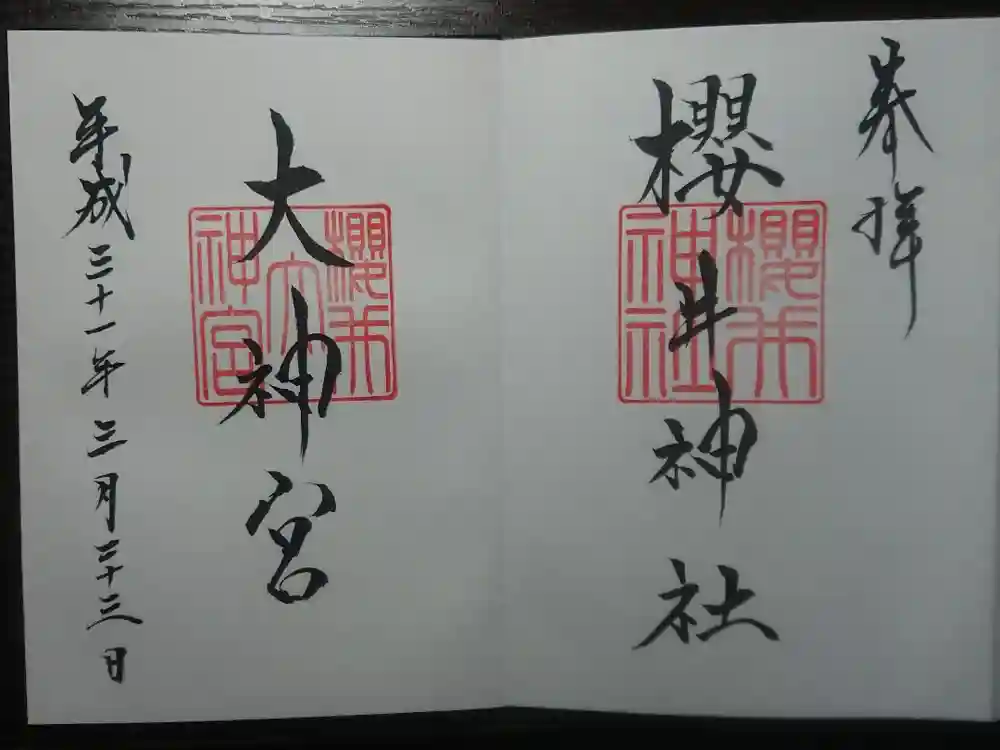 奉拝
櫻井神社
櫻井
神社
大神宮
櫻井
大
神宮
平成三十一年三月二十三日